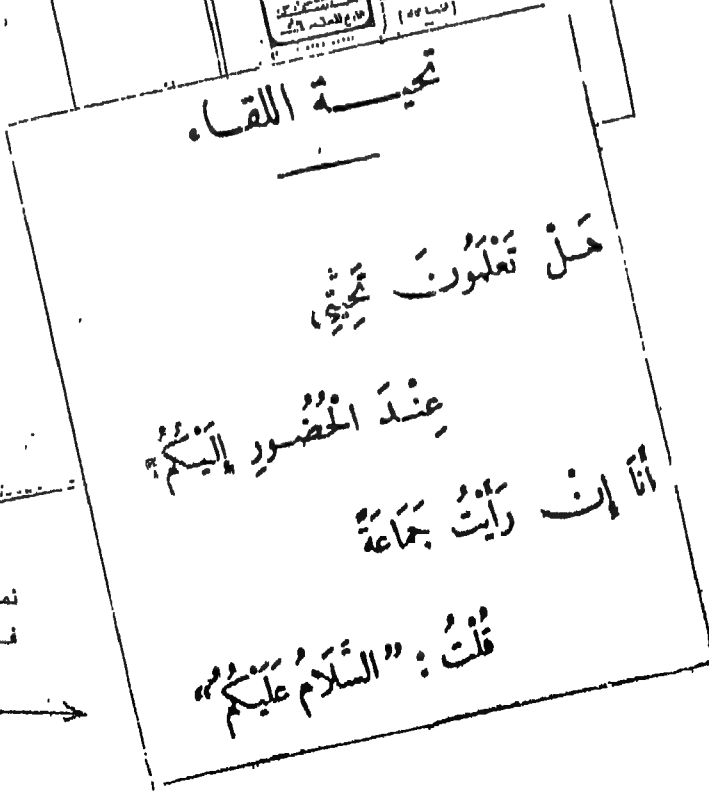 تحيـــة اللقــاء
هَـلْ تَعْلَمُونَ تَحِيَّتِي
عِنْـدَ الْحُضُـورِ إِلَيْكُمُ ؟
أَنَا إِنْ رَأَيْتُ جَمَاعَةً
قُلْتُ : " السَّلَامُ عَلَيْكُمُ "
نم
فـ